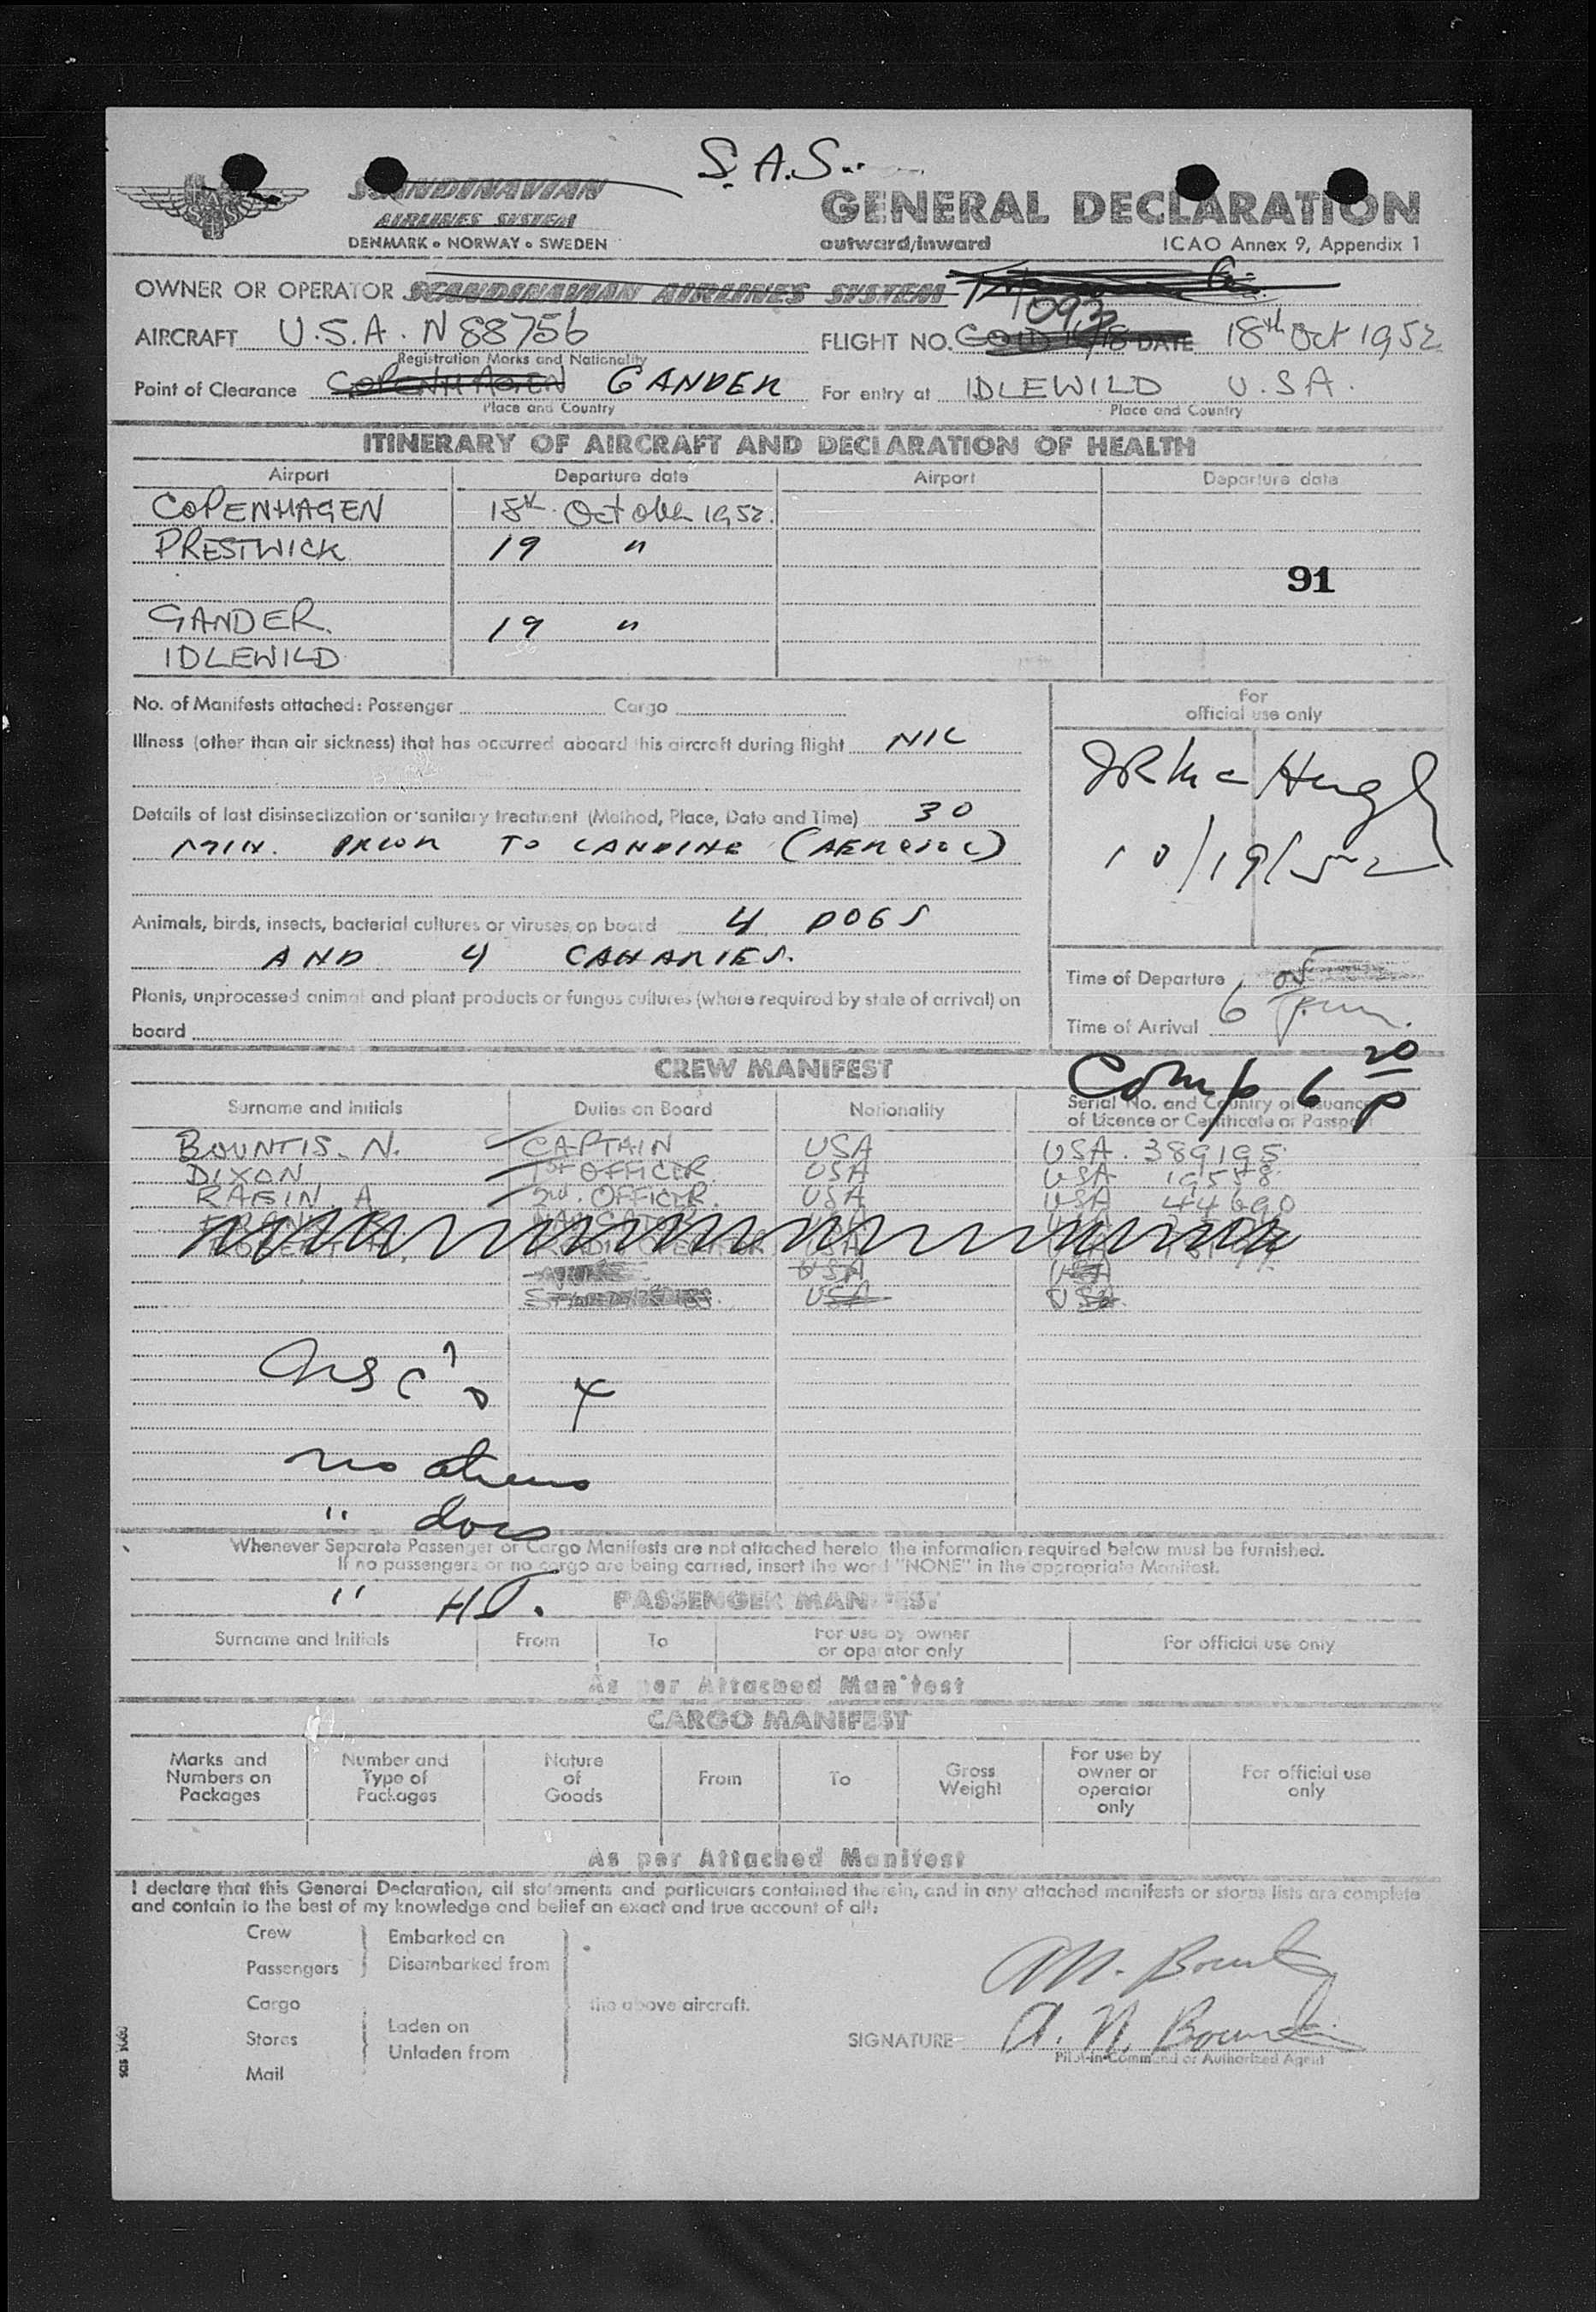 S.A.S.
SCANDINAVIAN
AIRLINES SYSTEM
DENMARK • NORWAY • SWEDEN
GENERAL DECLARATION
outward/inward ICAO Annex 9, Appendix 1
OWNER OR OPERATOR SCANDINAVIAN AIRLINES SYSTEM
1093
AIRCRAFT U.S.A. N 88756 FLIGHT NO. DATE 18th Oct 1952
Registration Marks and Nationality
Point of Clearance COPENHAGEN GANDER For entry at IDLEWILD U.S.A.
Place and Country Place and Country
ITINERARY OF AIRCRAFT AND DECLARATION OF HEALTH
Airport Departure date Airport Departure date
COPENHAGEN 18th October 1952.
PRESTWICK 19 "
91
GANDER. 19 "
IDLEWILD
No. of Manifests attached: Passenger Cargo
for
official use only
Illness (other than air sickness) that has occurred aboard this aircraft during flight NIL
JR McHugh
10/19/52
Details of last disinsectization or sanitary treatment (Method, Place, Date and Time) 30
MIN. PRIOR TO LANDING (AEROSOL)
Animals, birds, insects, bacterial cultures or viruses on board 4 DOGS
AND 4 CANARIES.
Plants, unprocessed animal and plant products or fungus cultures (where required by state of arrival) on
board
Time of Departure
Time of Arrival 6 05 p.m.
CREW MANIFEST
Comp 6 20 P
Surname and Initials Duties on Board Nationality Serial No. and Country of Issuance
of Licence or Certificate or Passport
BOUNTIS. N. CAPTAIN USA USA. 389195
DIXON 1st OFFICER USA USA 19558
RAFIN A 2nd. OFFICER. USA USA 44690
NAVIGATOR
RADIO OPERATOR USA
USA USA
USA USA
4
no aliens
" docs
Whenever Separate Passenger or Cargo Manifests are not attached hereto, the information required below must be furnished.
If no passengers or no cargo are being carried, insert the word "NONE" in the appropriate Manifest.
"
PASSENGER MANIFEST
Surname and Initials From To For use by owner
or operator only For official use only
As per Attached Manifest
CARGO MANIFEST
Marks and
Numbers on
Packages Number and
Type of
Packages Nature
of
Goods From To Gross
Weight For use by
owner or
operator
only For official use
only
As per Attached Manifest
I declare that this General Declaration, all statements and particulars contained therein, and in any attached manifests or stores lists are complete
and contain to the best of my knowledge and belief an exact and true account of all:
Crew Embarked on
Passengers Disembarked from
Cargo the above aircraft.
Stores Laden on
Unladen from
Mail
SIGNATURE A. N. Bountis
Pilot-in-Command or Authorized Agent